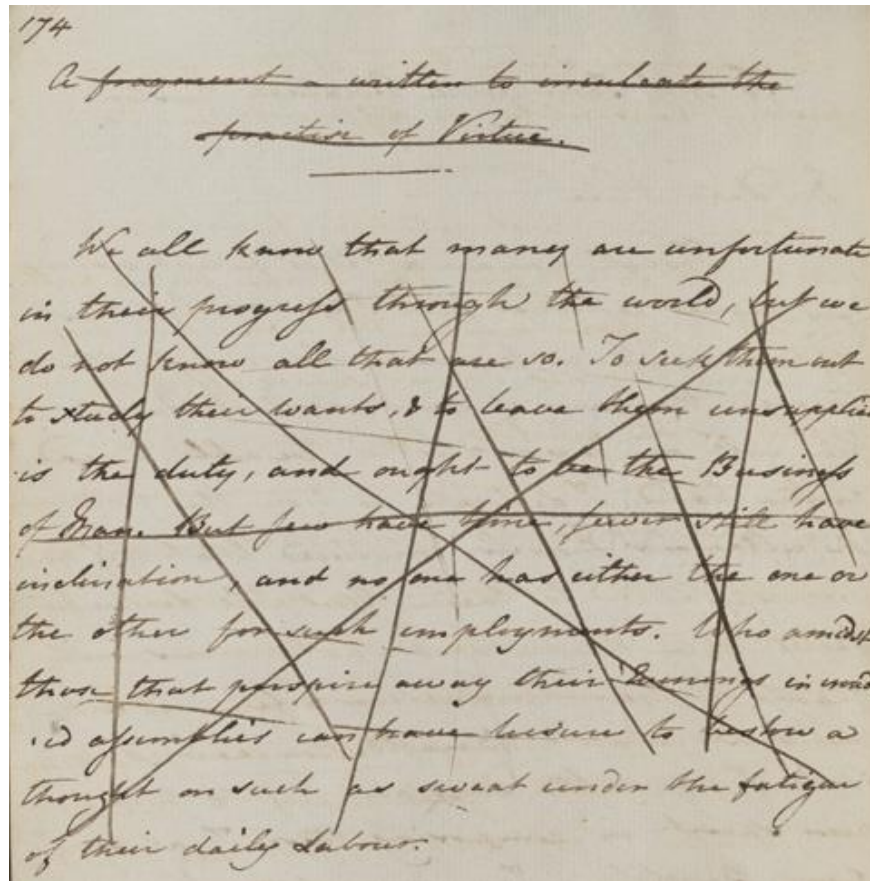 174
A fragment - written to inculcate the
practise of Virtue.
We all know that many are unfortunate
in their progress through the world, but we
do not know all that are so. To seek them out
to study their wants, & to leave them unsupplied
is the duty, and ought to be the Business
of Man. But few have time, fewer still have
inclination, and no one has either the one or
the other for such employments. Who amidst
those that perspire away their Evenings in crowd
:ed assemblies can have leisure to bestow a
thought on such as sweat under the fatigue
of their daily Labour.